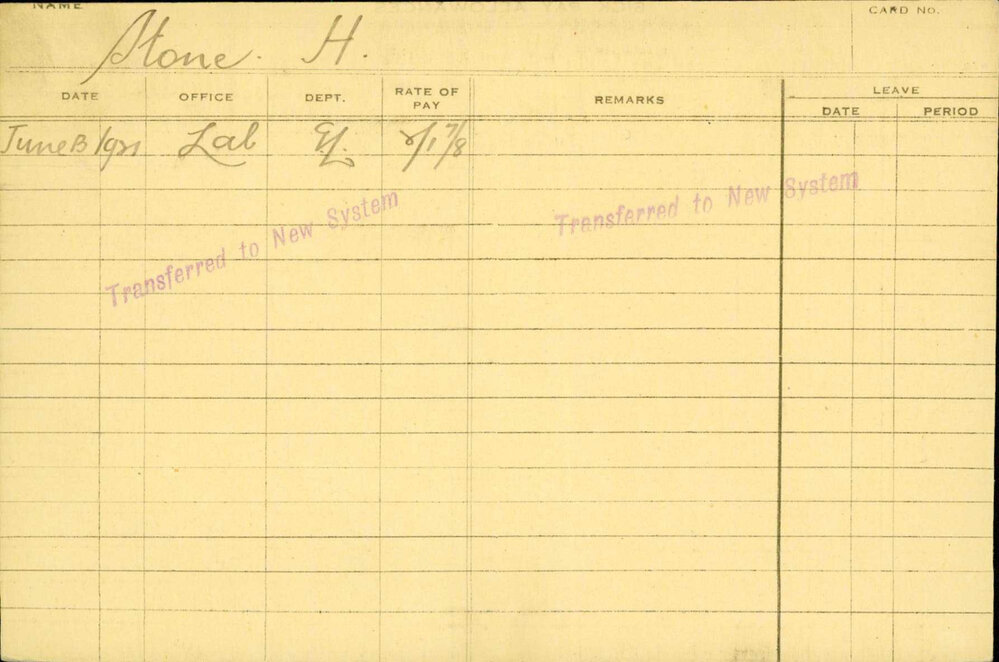 NAME
CARD NO.
Stone. H.
DATE OFFICE DEPT. RATE OF PAY REMARKS LEAVE
DATE PERIOD
June 13 1921 Lab
Transferred to New System
Transferred to New System